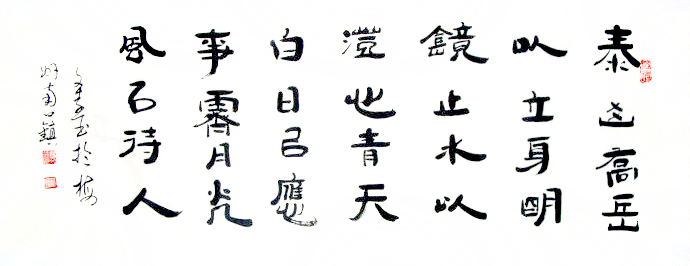 泰山喬岳
以立身明
鏡止水以
澄心青天
白日以應
事霽月光
風以待人
於梅
南